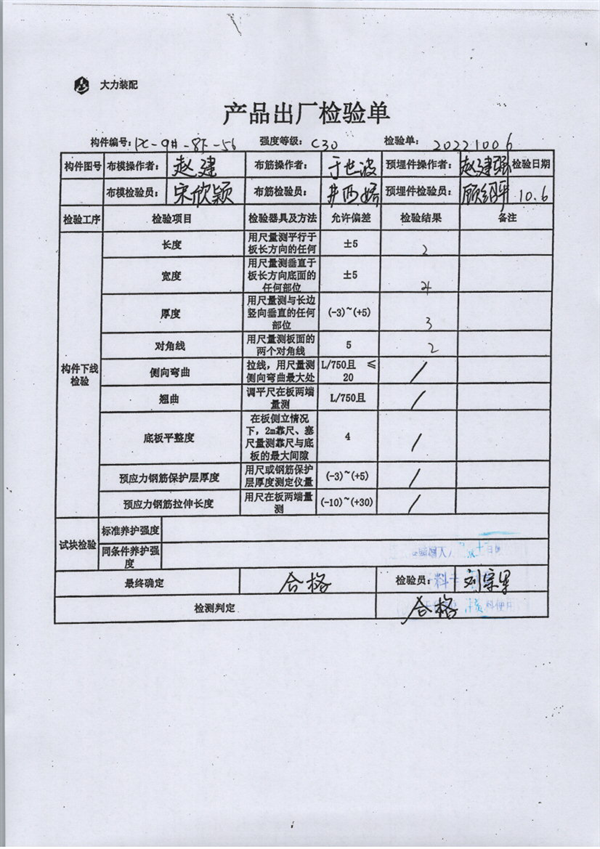 大力装配
产品出厂检验单
构件编号: PC-9#-8F-56 强度等级: C30 检验单: 20221006
构件图号 布模操作者: 赵建 布筋操作者: 于世波 预埋件操作者: 赵建强 检验日期
布模检验员: 宋欣颖 布筋检验员: 预埋件检验员: 10.6
检验工序 检验项目 检验器具及方法 允许偏差 检验结果 备注
构件下线检验
长度 用尺量测平行于板长方向的任何 ±5 2
宽度 用尺量测垂直于板长方向底面的任何部位 ±5 4
厚度 用尺量测与长边竖向垂直的任何部位 (-3)~(+5) 3
对角线 用尺量测板面的两个对角线 5 2
侧向弯曲 拉线，用尺量测侧向弯曲最大处 L/750且 ≤20 /
翘曲 调平尺在板两端量测 L/750且 /
底板平整度 在板侧立情况下，2m靠尺、塞尺量测靠尺与底板的最大间隙 4 /
预应力钢筋保护层厚度 用尺或钢筋保护层厚度测定仪量 (-3)~(+5) /
预应力钢筋拉伸长度 用尺在板两端量测 (-10)~(+30) /
试块检验 标准养护强度
同条件养护强度
最终确定 合格 检验员:
检测判定 合格